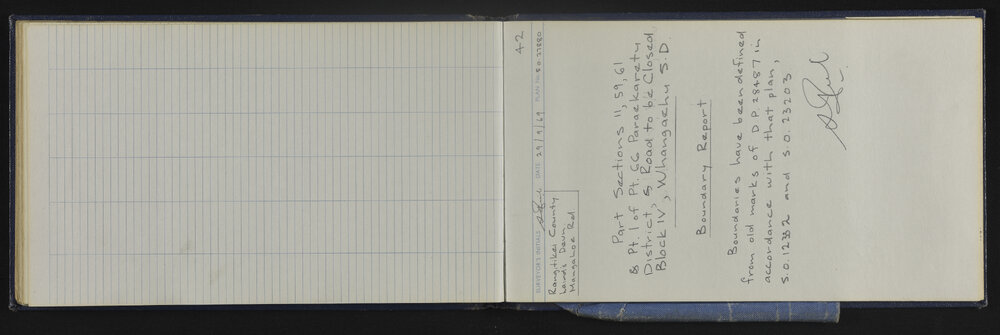 42
SURVEYOR'S INITIALS DATE 29/9/69 PLAN No. S.O. 27880
Rangitikei County
Lands Dawn
Mangahoe Rd
Part Sections 11, 59, 61
& Pt. 1 of Pt. 66 Paraekaretu
District, & Road to be Closed,
Block IV, Whangaehu S.D.
Boundary Report
Boundaries have been defined
from old marks of D.P. 28487 in
accordance with that plan,
S.O. 12382 and S.O. 23203